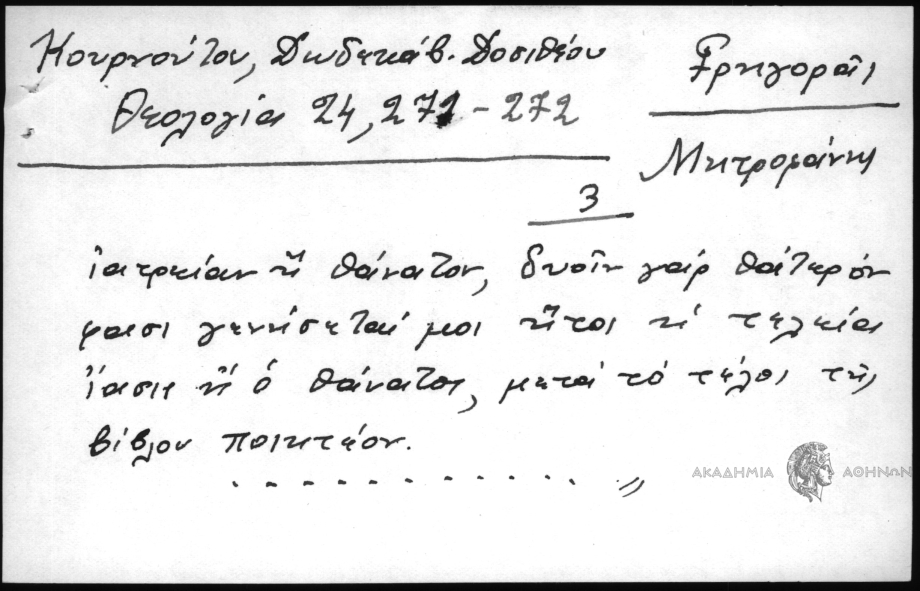 Κουρνούτου, Δωδεκάβ. Δοσιθέου
Θεολογία 24, 271-272
Γρηγορᾶς
Μητροφάνης
3
ἰατρείαν ἢ θάνατον, δυοῖν γάρ θάτερόν
φασι γεννήσεταί μοι ἤτοι ἡ τελεία
ἴασις ἢ ὁ θάνατος, μετά τό τέλος τῆς
βίβλου ποιητέον.
. . . . . . . . . . . . . »
ΑΚΑΔΗΜΙΑ ΑΘΗΝΩΝ